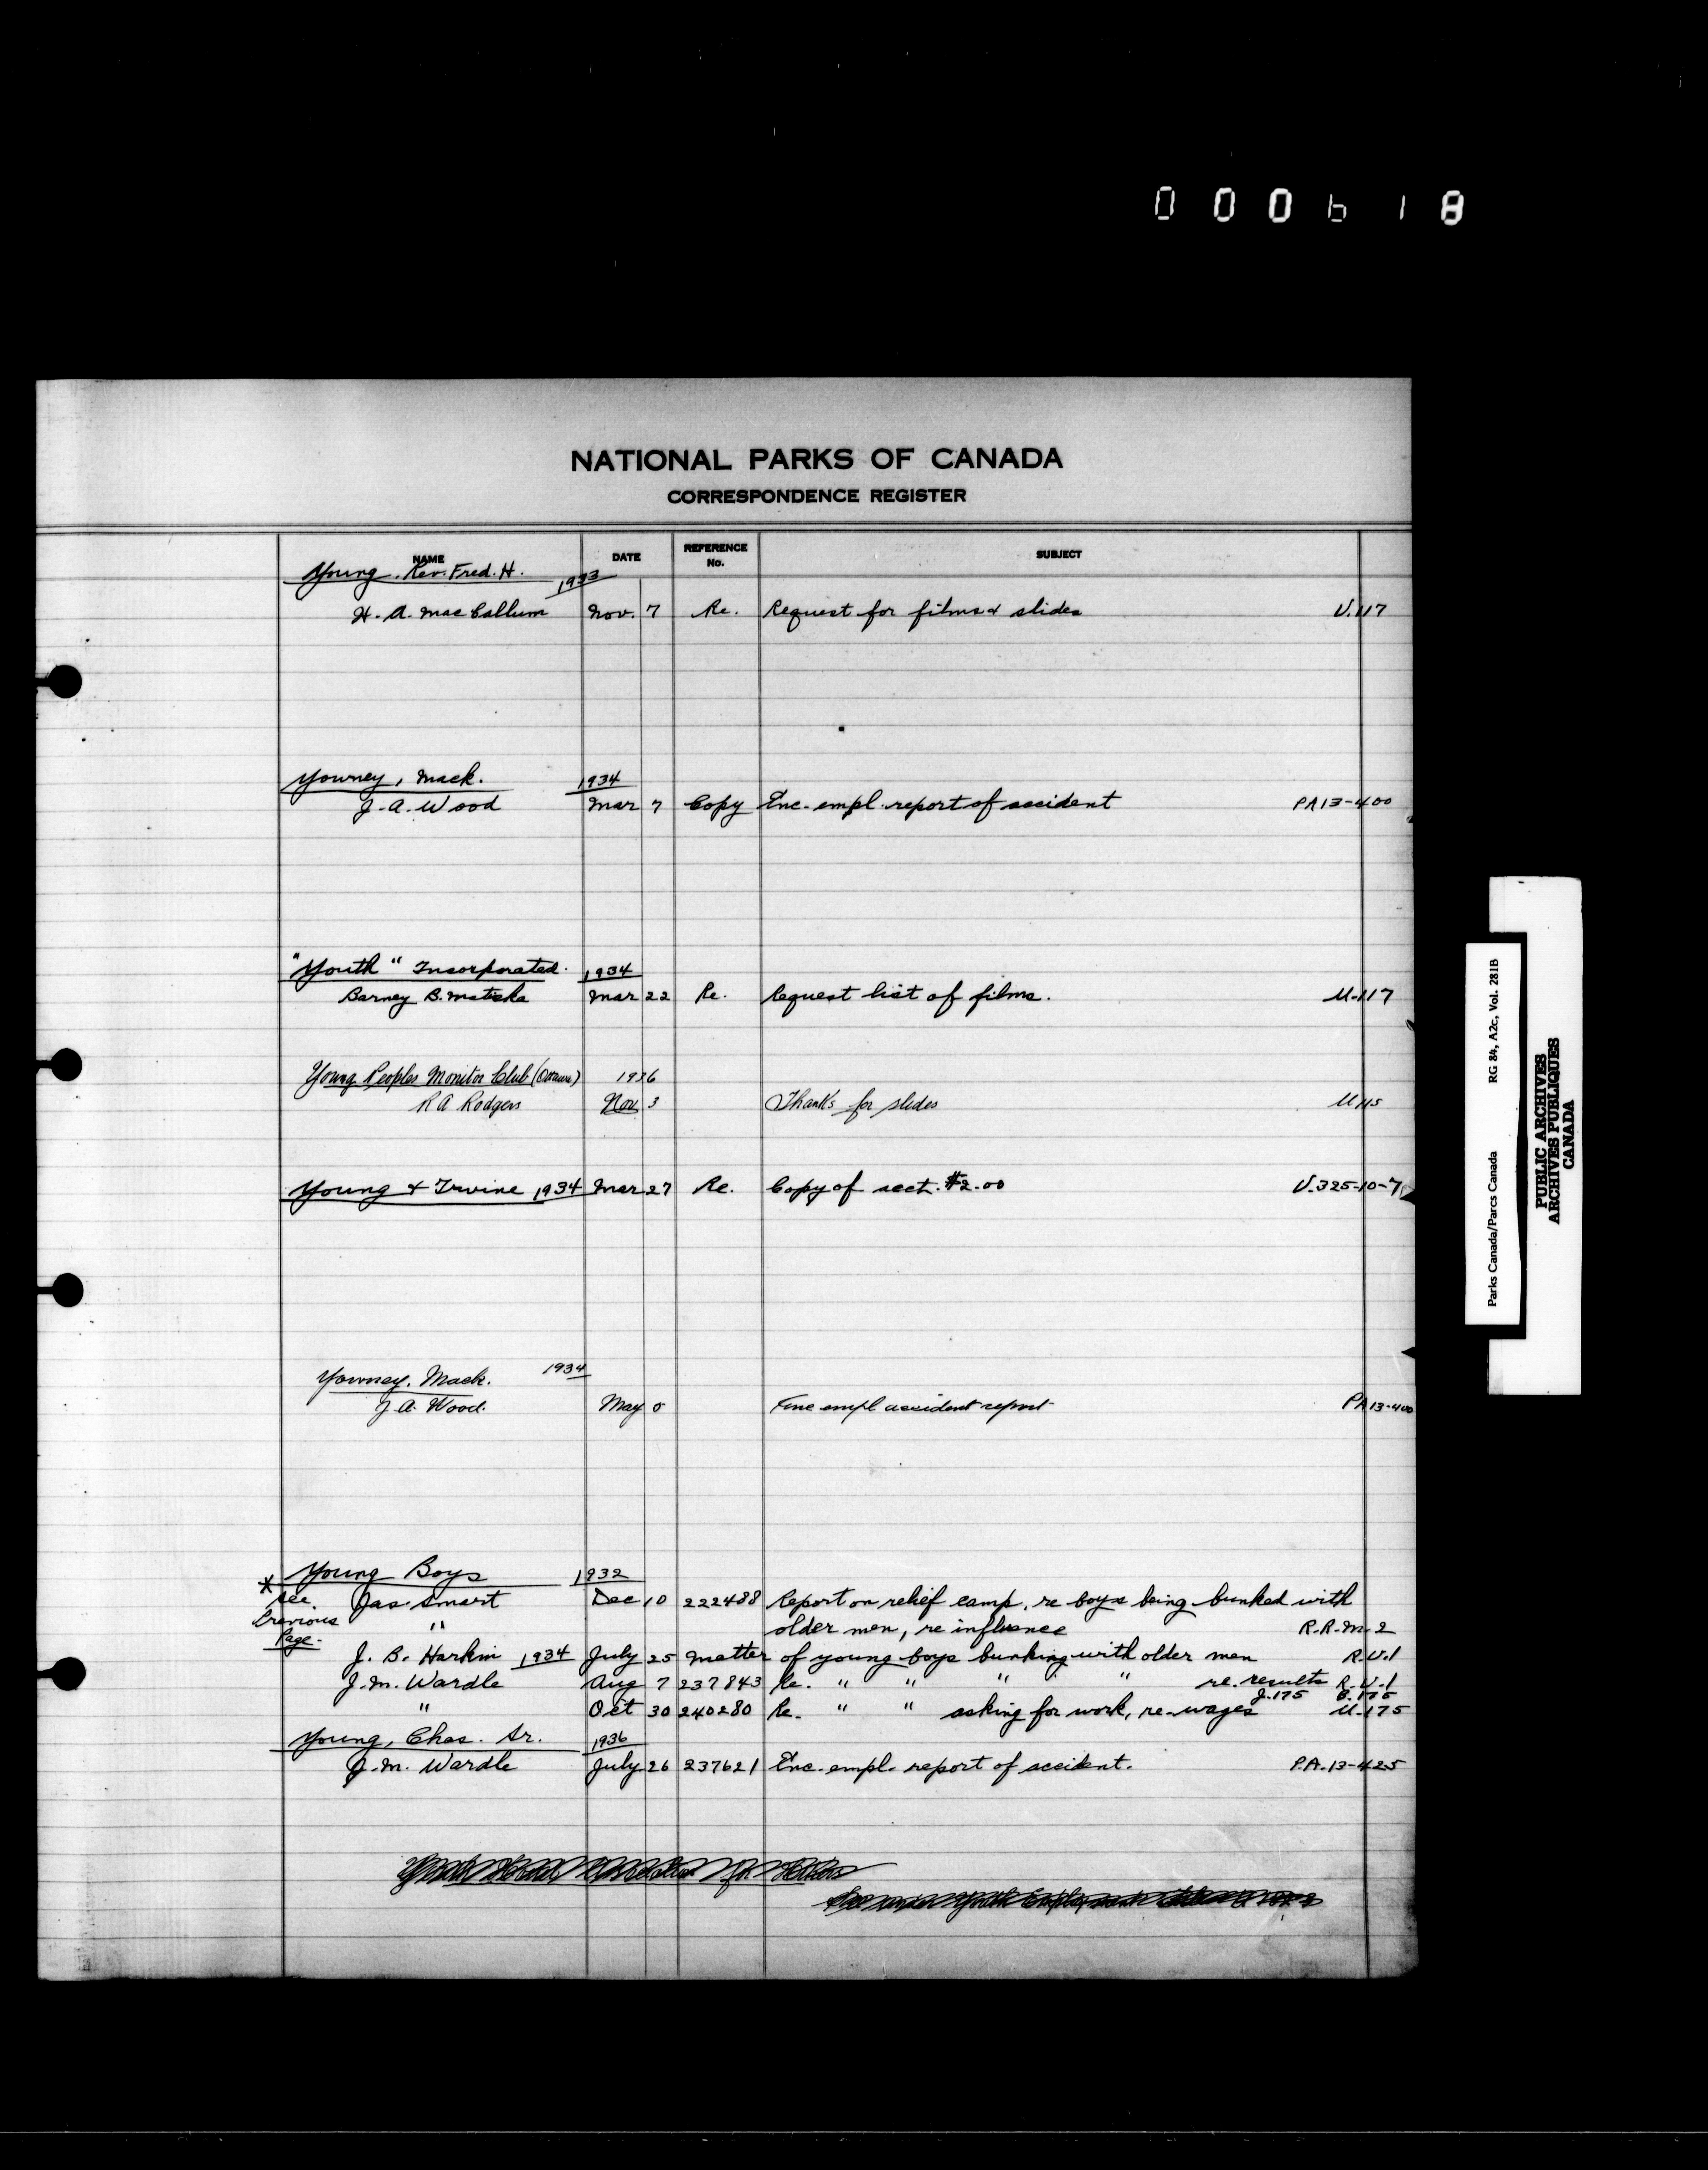 000618
NATIONAL PARKS OF CANADA
CORRESPONDENCE REGISTER
NAME DATE REFERENCE No. SUBJECT
Young, Rev. Fred. H. 1933
H. A. MacCallum Nov. 7 Re. Request for films & slides U.117
Yowney, Mack. 1934
J. A. Wood Mar 7 Copy Enc. empl. report of accident PA13-400
"Youth" Incorporated. 1934
Barney B. Mar 22 Re. Request list of films. U-117
Young Peoples Monitor Club (Ottawa) 1936
R A Rodgers Nov 3 Thanks for slides U115
Young & Irvine 1934 Mar 27 Re. Copy of acct. $2.00 U.325-10-7
Yowney, Mack. 1934
J. A. Wood. May empl accident report PA13-400
Young Boys 1932
* See Previous Page.
Jas Smart Dec 10 222488 Report on relief camp, re boys being bunked with
" older men, re influence R.R.M-2
J. B. Harkin 1934 July 25 matter of young boys bunking with older men R.U.1
J. M. Wardle Aug 7 237843 Re. " " " " re. results R.U.1
J.175
" Oct 30 240280 Re. " " asking for work, re-wages U-175
Young, Chas. Sr. 1936
J. M. Wardle July 26 237621 Enc. empl. report of accident. P.A.13-425
Parks Canada/Parcs Canada RG 84, A2c, Vol. 281B
PUBLIC ARCHIVES
ARCHIVES PUBLIQUES
CANADA